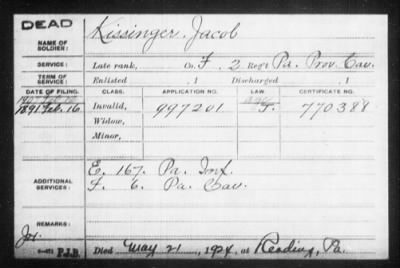 DEAD
NAME OF SOLDIER: Kissinger, Jacob
SERVICE: Late rank, Co. F, 2 Reg't Pa. Prov. Cav.
TERM OF SERVICE: Enlisted , 1 Discharged , 1
DATE OF FILING. CLASS. APPLICATION NO. LAW. CERTIFICATE NO.
1891 Feb. 16. Invalid, 997201 F. 770388
Widow,
Minor,
ADDITIONAL SERVICES: E. 167. Pa. Inf.
F. 6. Pa. Cav.
REMARKS:
P.I.B. Died May 21, 1924, at Reading, Pa.